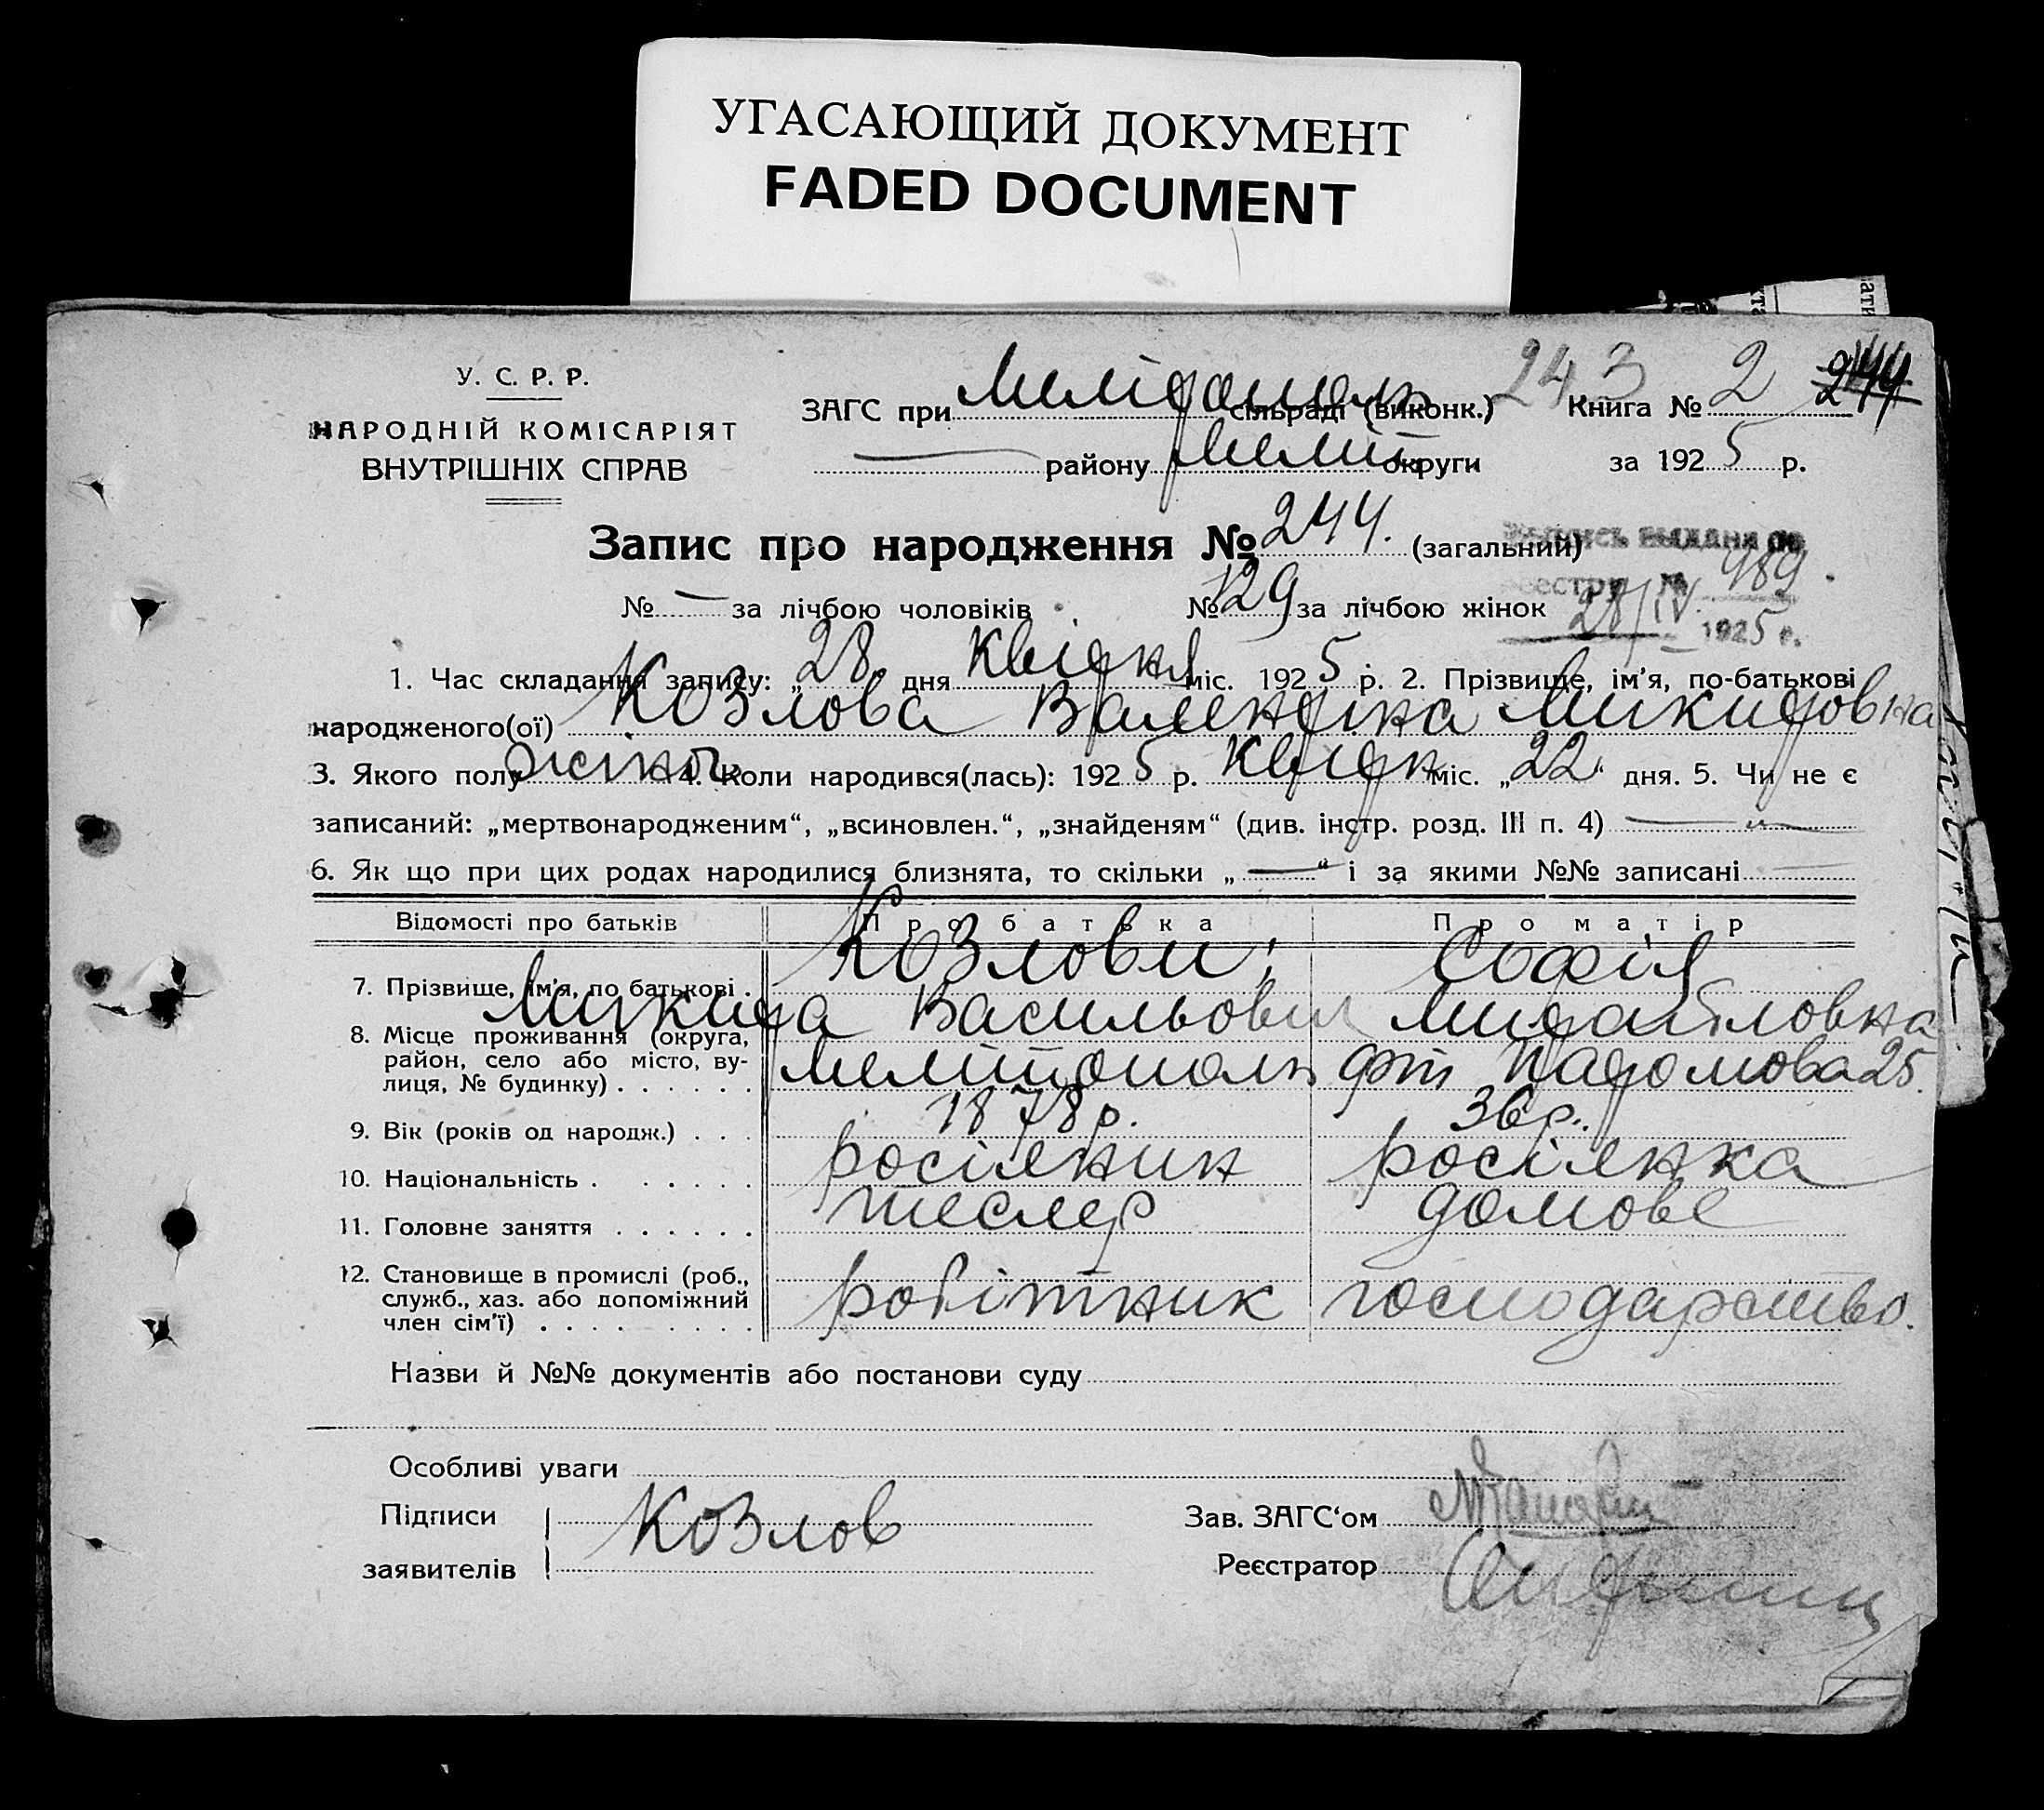 УГАСАЮЩИЙ ДОКУМЕНТ
FADED DOCUMENT
У. С. Р. Р.
НАРОДНІЙ КОМІСАРІЯТ
ВНУТРІШНІХ СПРАВ
ЗАГС при Мелітополь сільраді (виконк.) 243 Книга № 2 244
— району Меліт. округи за 1925 р.
Запис про народження № 244. (загальний)
№ — за лічбою чоловіків № 129 за лічбою жінок
выдана по
реестру № 989.
28/IV 1925 г.
1. Час складання запису: „28“ дня Квітня міс. 1925 р. 2. Прізвище, ім'я, по-батькові
народженого(ої) Козлова Валентіна Микитовна
3. Якого полу жіноч. 4. Коли народився(лась): 1925 р. Квітн міс. „22“ дня. 5. Чи не є
записаний: „мертвонародженим“, „всиновлен.“, „знайденям“ (див. інстр. розд. III п. 4) —
6. Як що при цих родах народилися близнята, то скільки „—“ і за якими №№ записані —
Відомості про батьків Про батька Про матір
7. Прізвище, ім'я, по батькові . Козлови; Софія
Микита Васильович Михайловна
8. Місце проживання (округа,
район, село або місто, ву-
лиця, № будинку) . . . . . . Мелітополь 25.
9. Вік (років од народж.) . . . 1878 р. 36 р.
10. Національність . . . . . . росіянин росіянка
11. Головне заняття . . . . . . тесляр домове
12. Становище в промислі (роб.,
служб., хаз. або допоміжний
член сім'ї) . . . . . . . . робітник господарство.
Назви й №№ документів або постанови суду
Особливі уваги
Підписи
заявителів Козлов
Зав. ЗАГС‘ом
Реєстратор